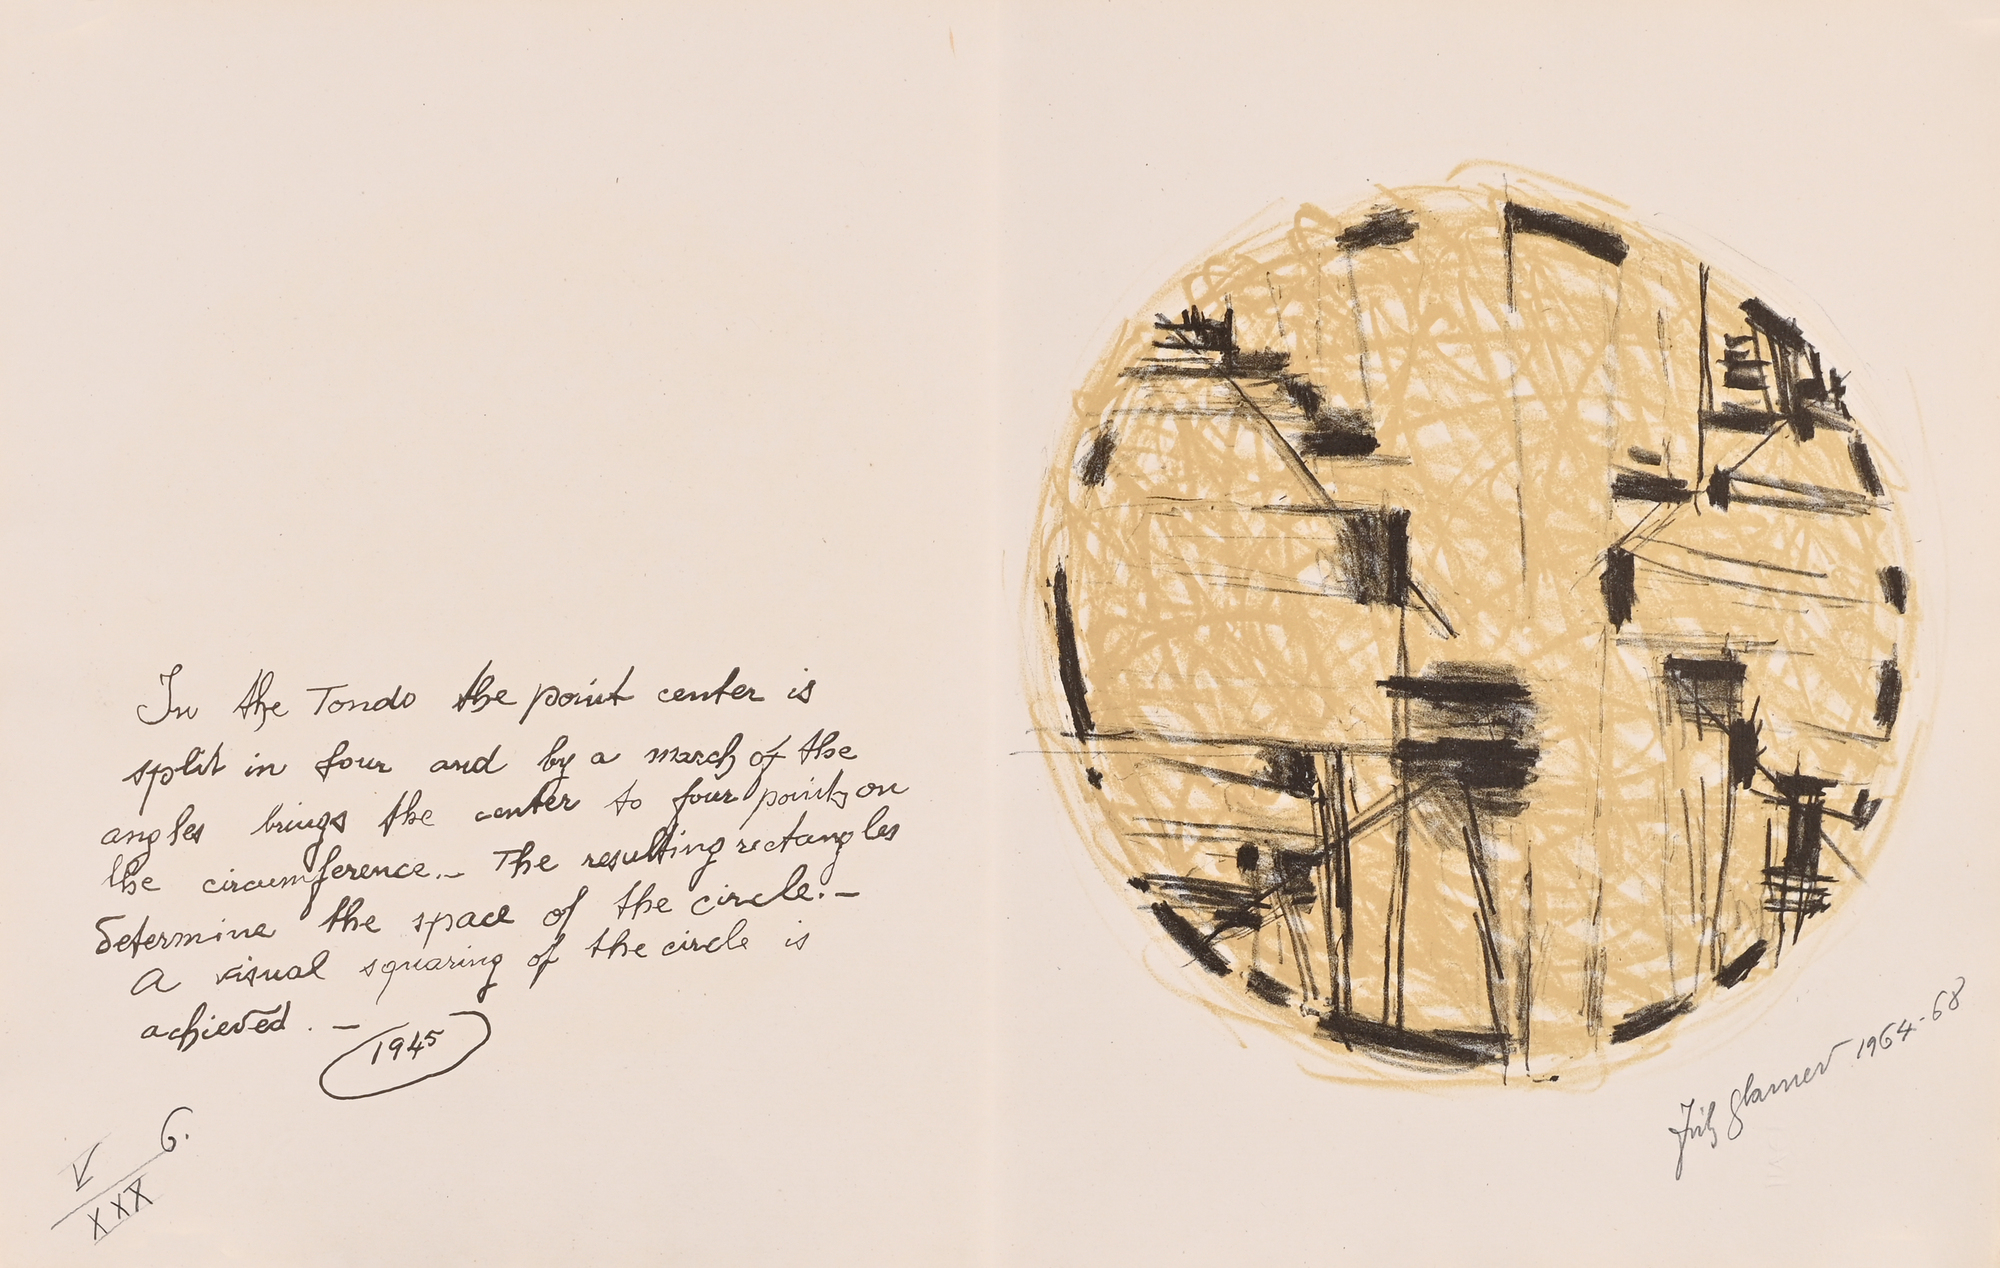 In the Tondo the point center is
split in four and by a march of the
angles brings the center to four points on
the circumference. _ The resulting rectangles
determine the space of the circle. _
A visual squaring of the circle is
achieved . _
1945
6.
V
XXX
Fritz Glarner 1964-68